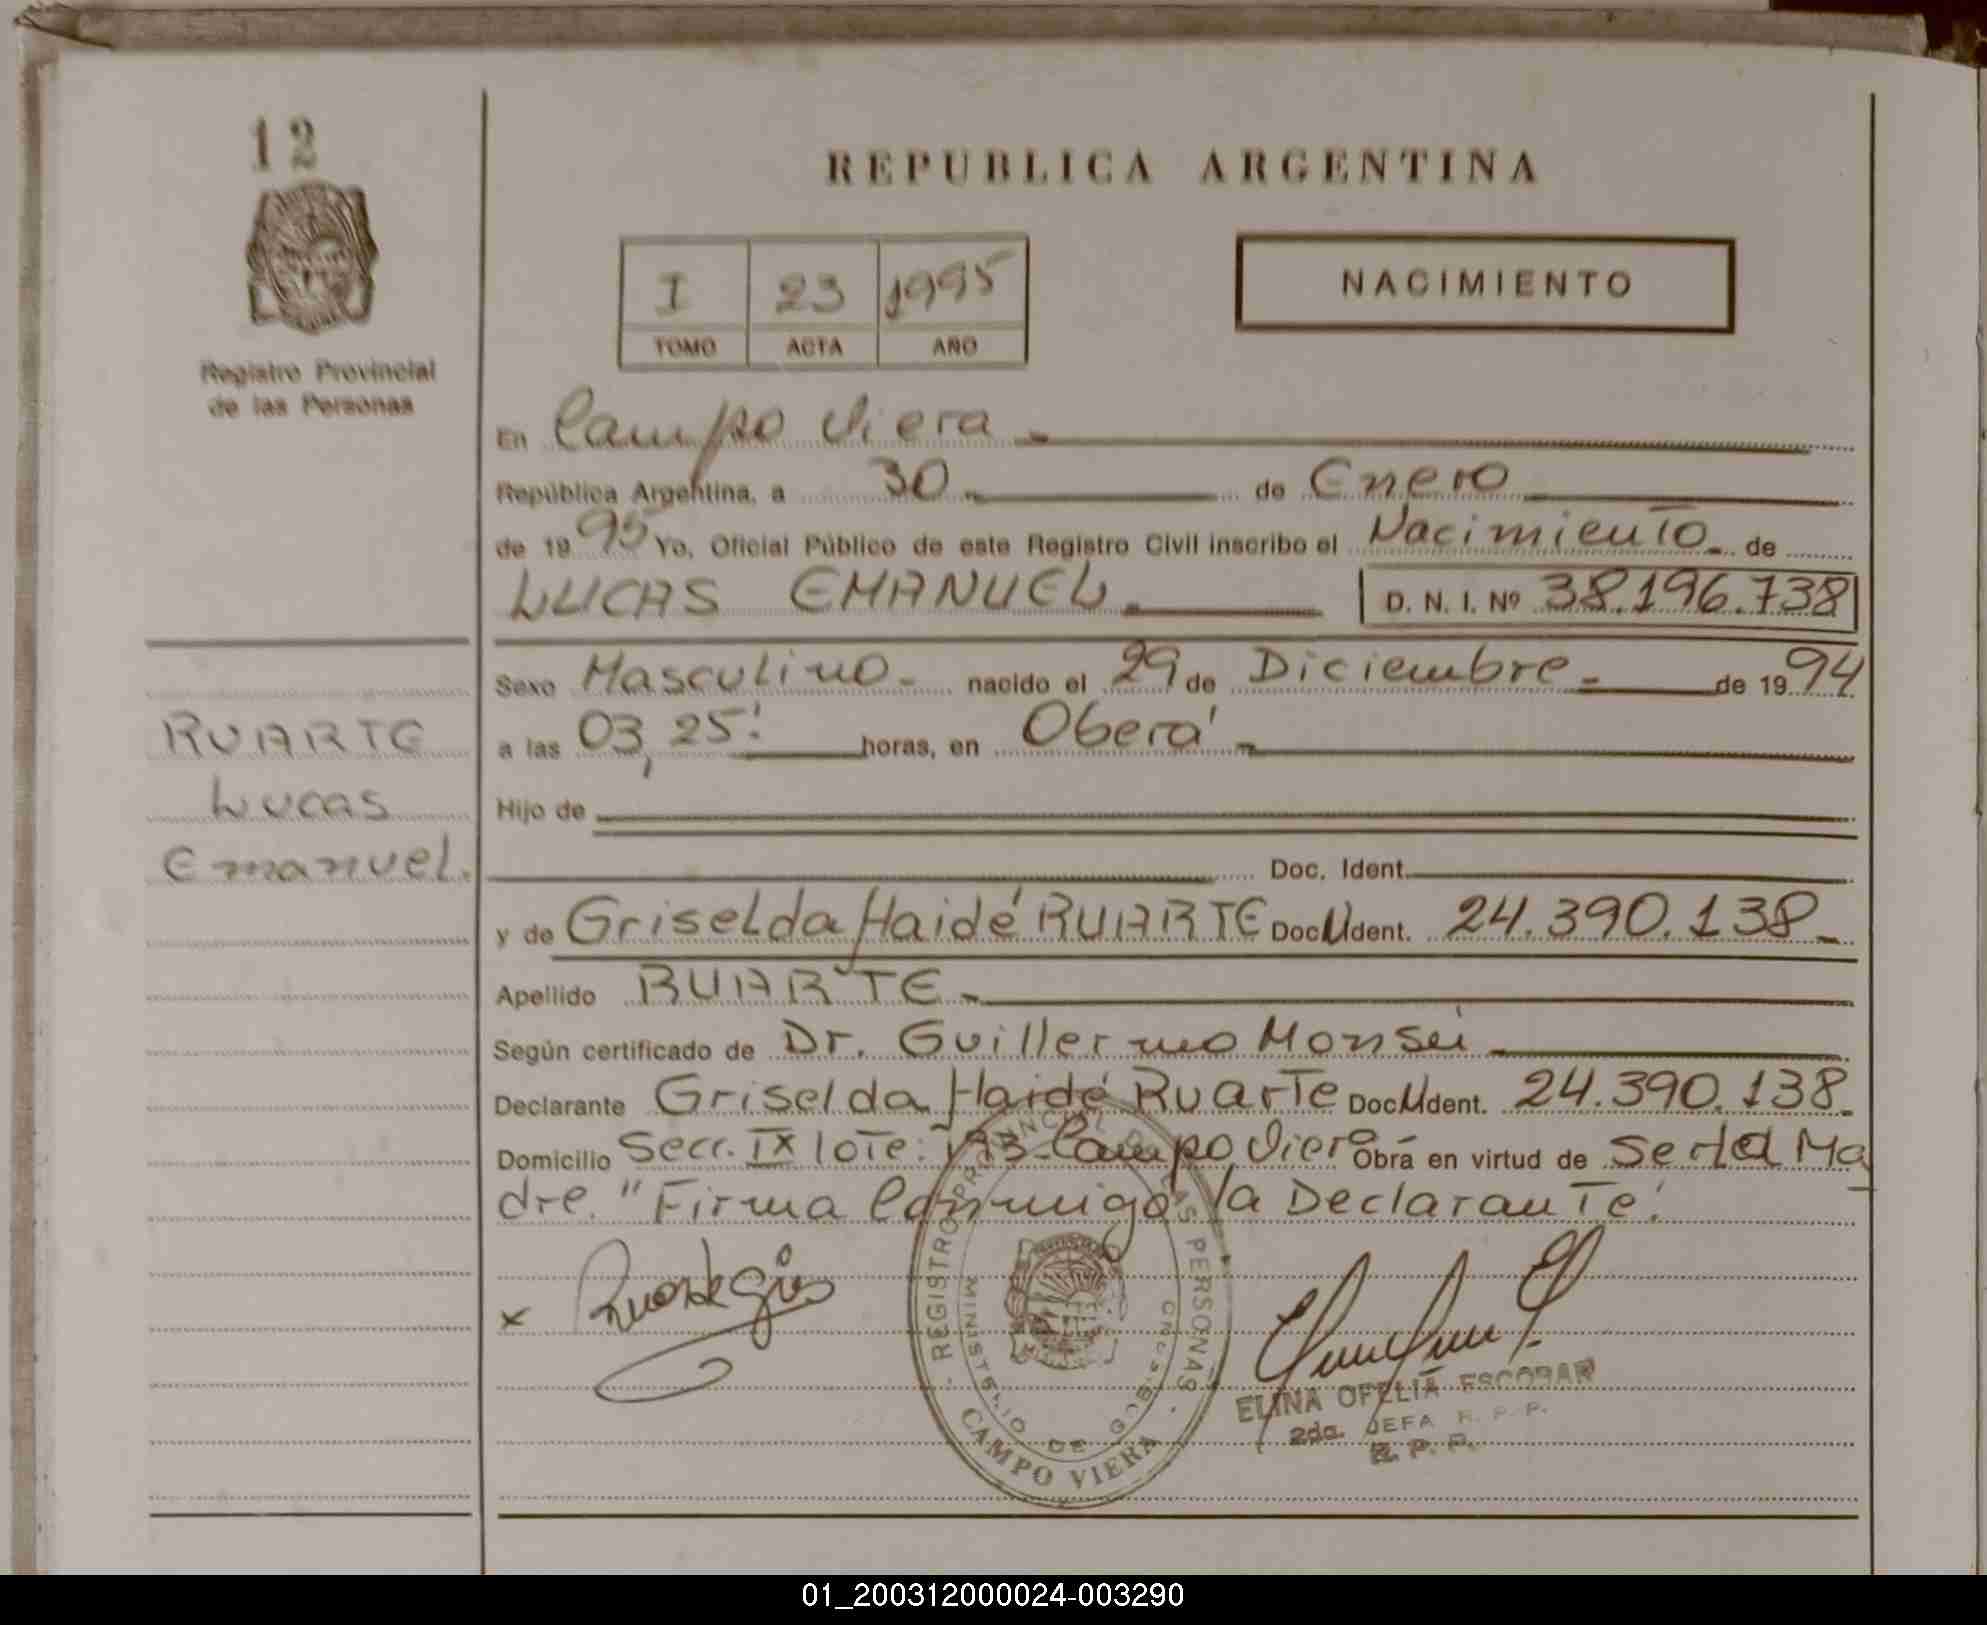 12
REPUBLICA ARGENTINA
I 23 1995
TOMO ACTA AÑO
NACIMIENTO
Registro Provincial
de las Personas
En Campo Viera
República Argentina, a 30 de Enero
de 1995 Yo, Oficial Público de este Registro Civil inscribo el Nacimiento de
LUCAS EMANUEL D. N. I. Nº 38.196.738
Sexo Masculino nacido el 29 de Diciembre de 1994
a las 03,25' horas, en Oberá
RUARTE
Lucas
Emanuel.
Hijo de
Doc. Ident.
y de Griselda Haidé RUARTE Doc. Ident. 24.390.138
Apellido RUARTE
Según certificado de Dr. Guillermo
Declarante Griselda Haidé Ruarte Doc. Ident. 24.390.138
Domicilio Secc. IX lote: 193 Campo Viera Obrá en virtud de Ser la Ma
dre. "Firma Conmigo la Declarante.
x
REGISTRO PROVINCIAL DE LAS PERSONAS
MINISTERIO DE
CAMPO VIERA
ELINA OFELIA ESCOBAR
2da. JEFA R. P. P.
R. P. P.
01_200312000024-003290